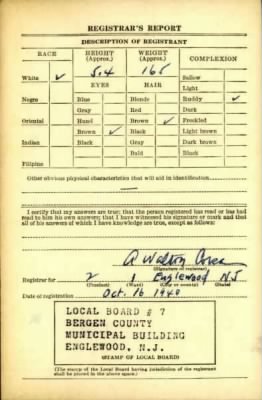 REGISTRAR'S REPORT
DESCRIPTION OF REGISTRANT
RACE HEIGHT (Approx.) WEIGHT (Approx.) COMPLEXION
White ✓ 5.4 165 Sallow
EYES HAIR Light
Negro Blue Blonde Ruddy ✓
Gray Red Dark
Oriental Hazel Brown ✓ Freckled
Brown ✓ Black Light brown
Indian Black Gray Dark brown
Bald Black
Filipino
Other obvious physical characteristics that will aid in identification
I certify that my answers are true; that the person registered has read or has had
read to him his own answers; that I have witnessed his signature or mark and that
all of his answers of which I have knowledge are true, except as follows:
A Walton
(Signature of registrar)
Registrar for 2 1 Englewood N J
(Precinct) (Ward) (City or county) (State)
Date of registration Oct. 16 1940
LOCAL BOARD # 7
BERGEN COUNTY
MUNICIPAL BUILDING
ENGLEWOOD, N.J.
(STAMP OF LOCAL BOARD)
(The stamp of the Local Board having jurisdiction of the registrant
shall be placed in the above space.)